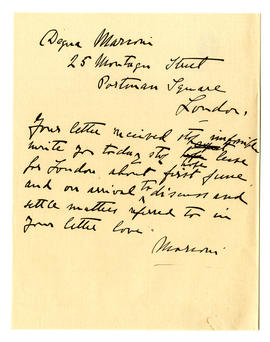 Degna Marconi
25 Montagu Street
Portman Square
London.
Your letter received stop impossible
write you today stop hope leave
for London about first June
and on arrival to discuss and
settle matters referred to in
your letter love.
Marconi